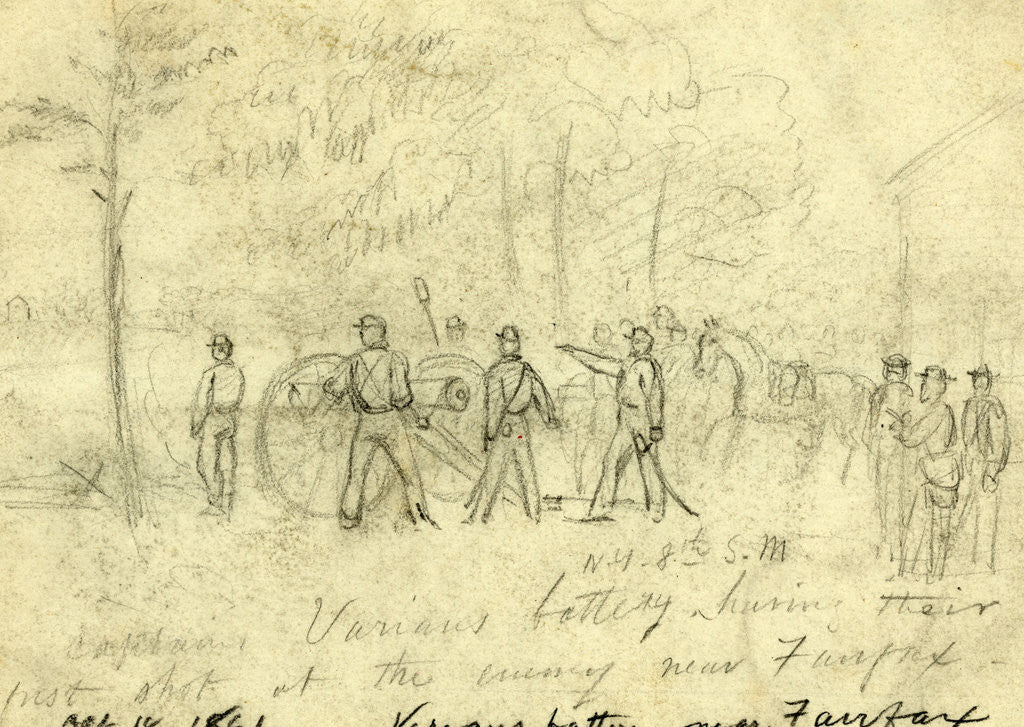 N.Y. 8th S. M
Captain Varians battery having their
first shot at the enemy near Fairfax -
1861 Varians near Fairfax